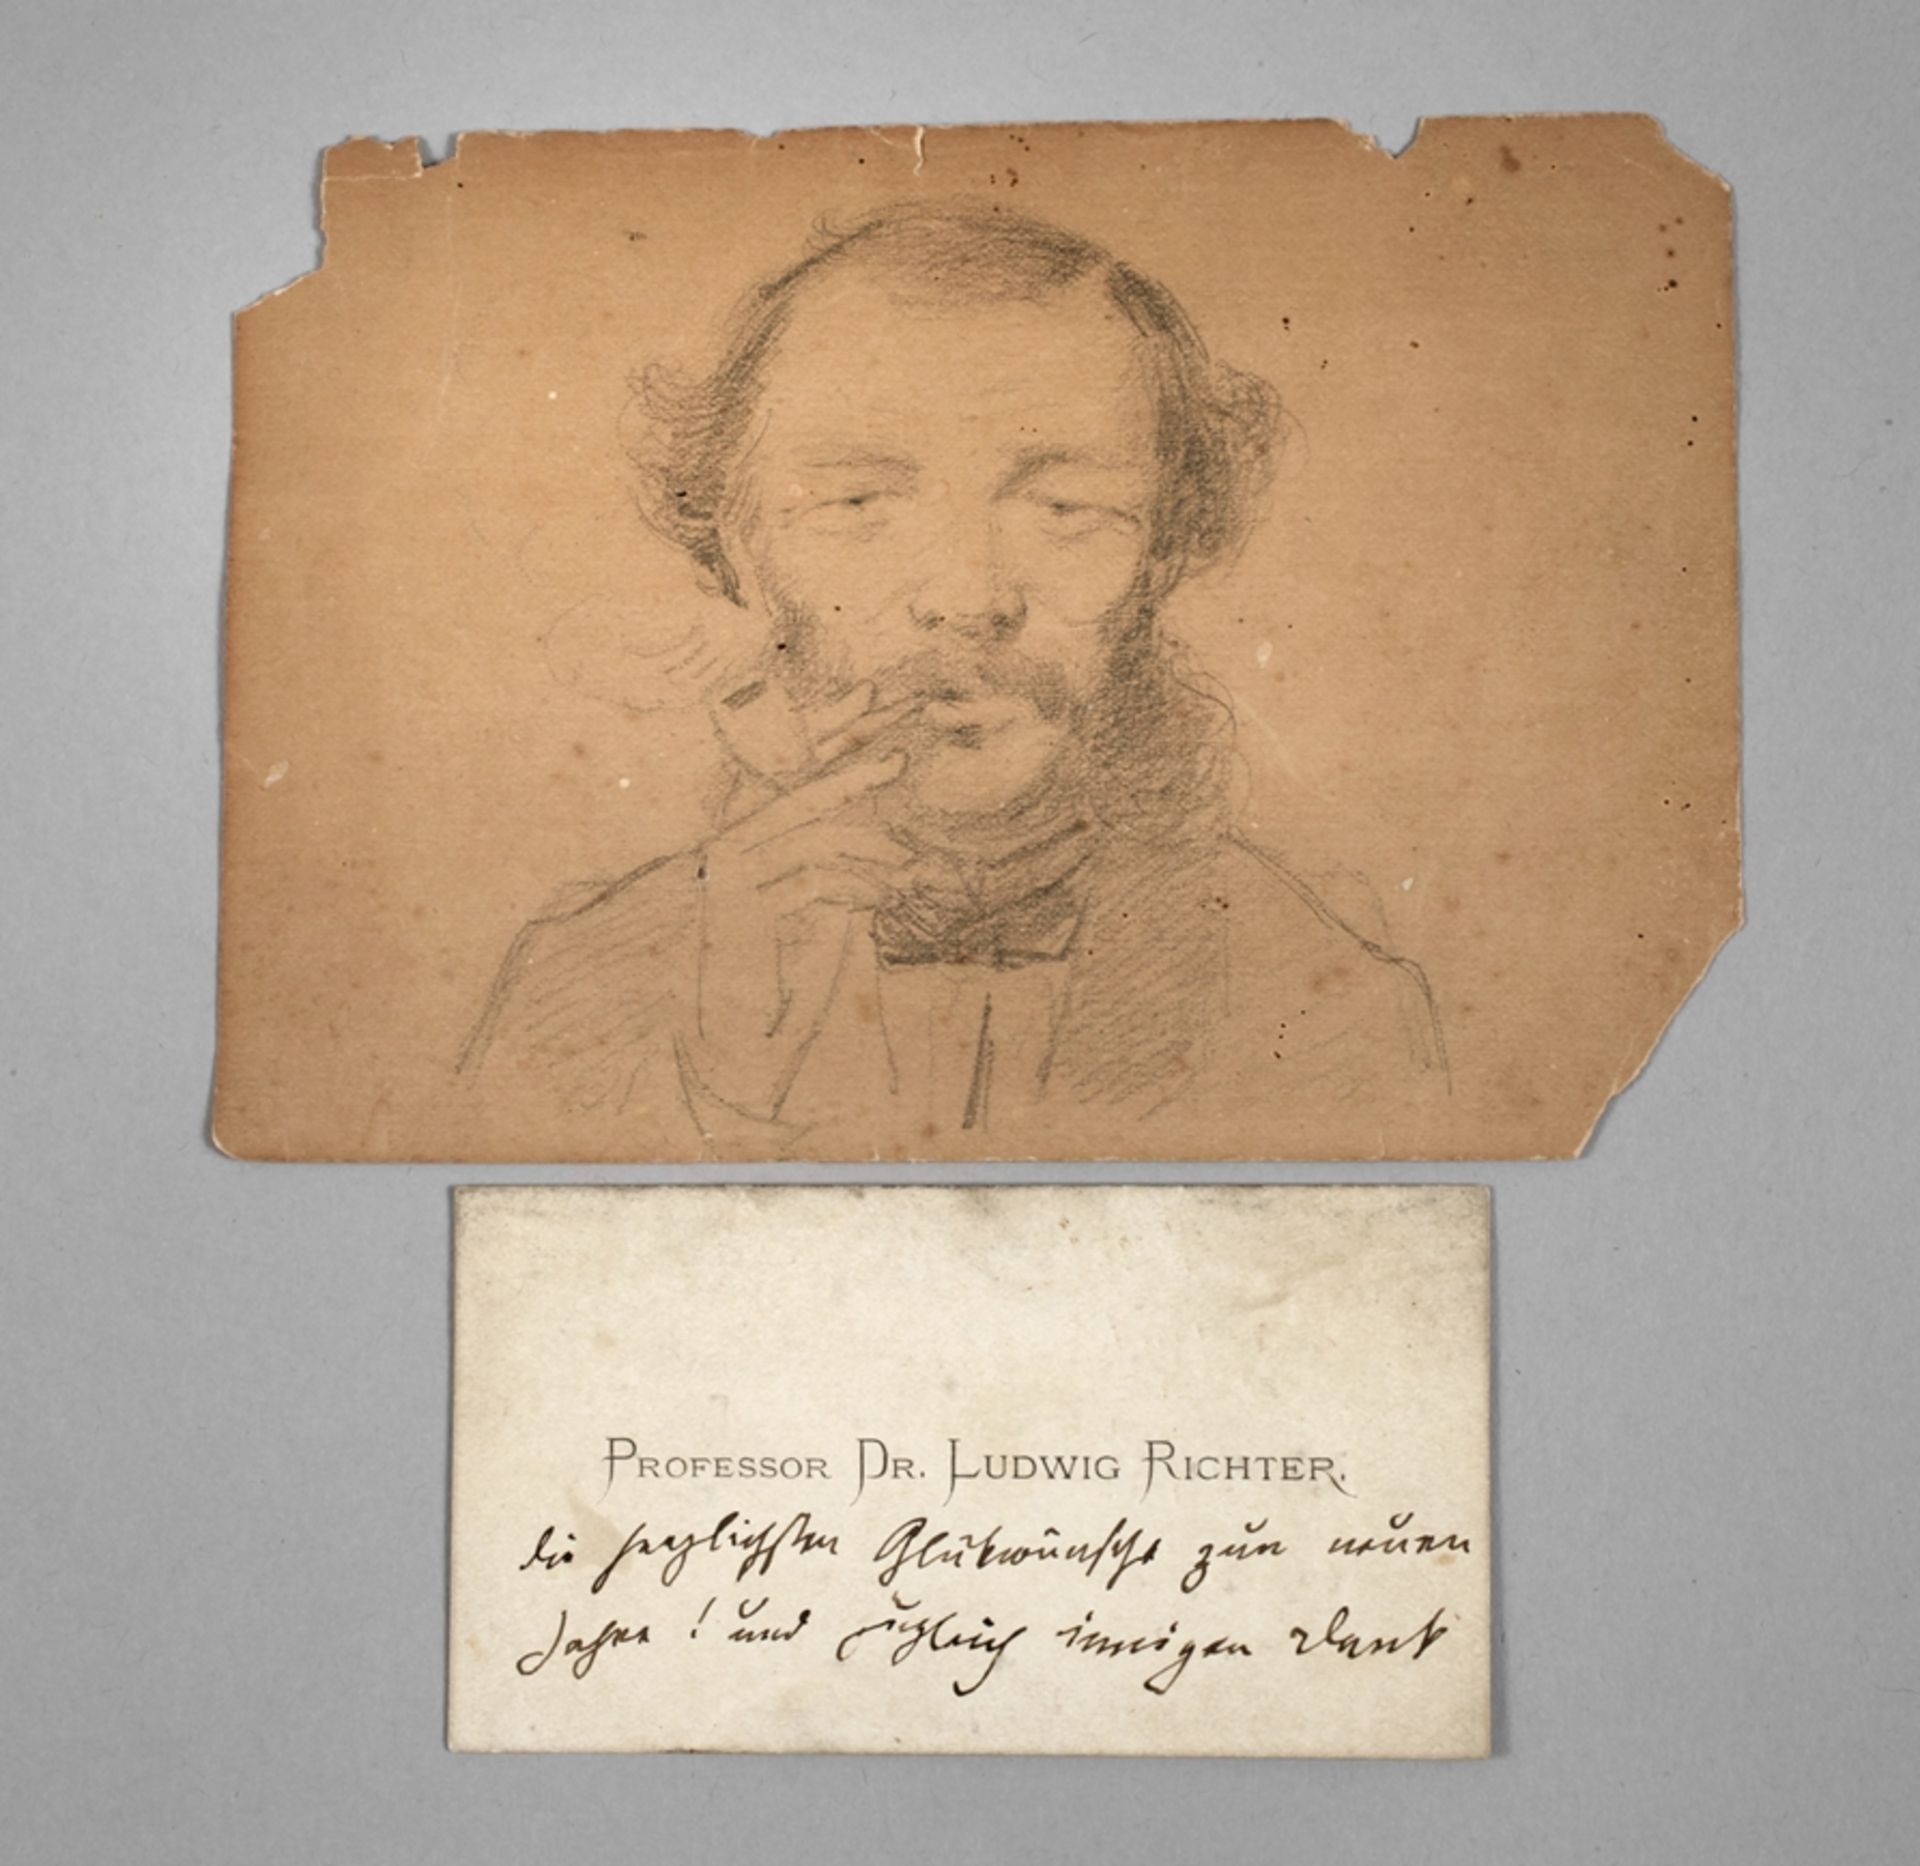 PROFESSOR DR. LUDWIG RICHTER.
die herzlichsten Glükwünsche zum neuen
Jahre! und zugleich innigen Dank